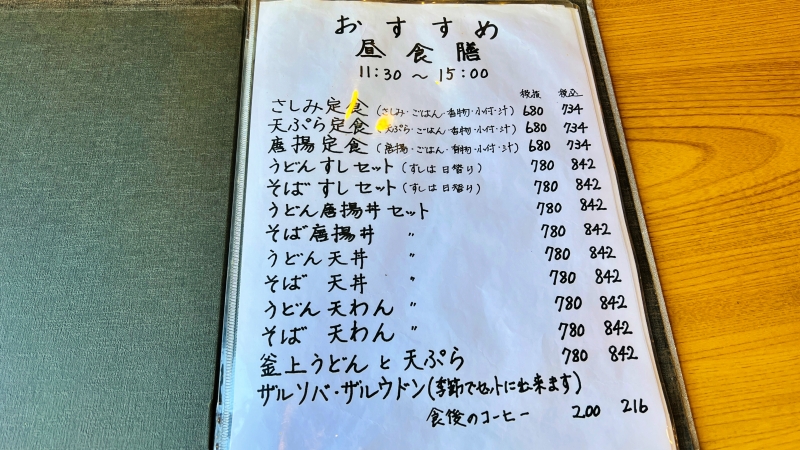 おすすめ
昼食膳
11:30～15:00
税抜 税込
さしみ定食(さしみ・ごはん・香物・小付・汁) 680 734
天ぷら定食(天ぷら・ごはん・香物・小付・汁) 680 734
唐揚定食(唐揚・ごはん・香物・小付・汁) 680 734
うどんすしセット(すしは日替り) 780 842
そばすしセット(すしは日替り) 780 842
うどん唐揚丼セット 780 842
そば唐揚丼 〃 780 842
うどん天丼 〃 780 842
そば 天丼 〃 780 842
うどん天わん 〃 780 842
そば 天わん 〃 780 842
釜上うどんと天ぷら 780 842
ザルソバ・ザルウドン(季節でセットに出来ます)
食後のコーヒー 200 216